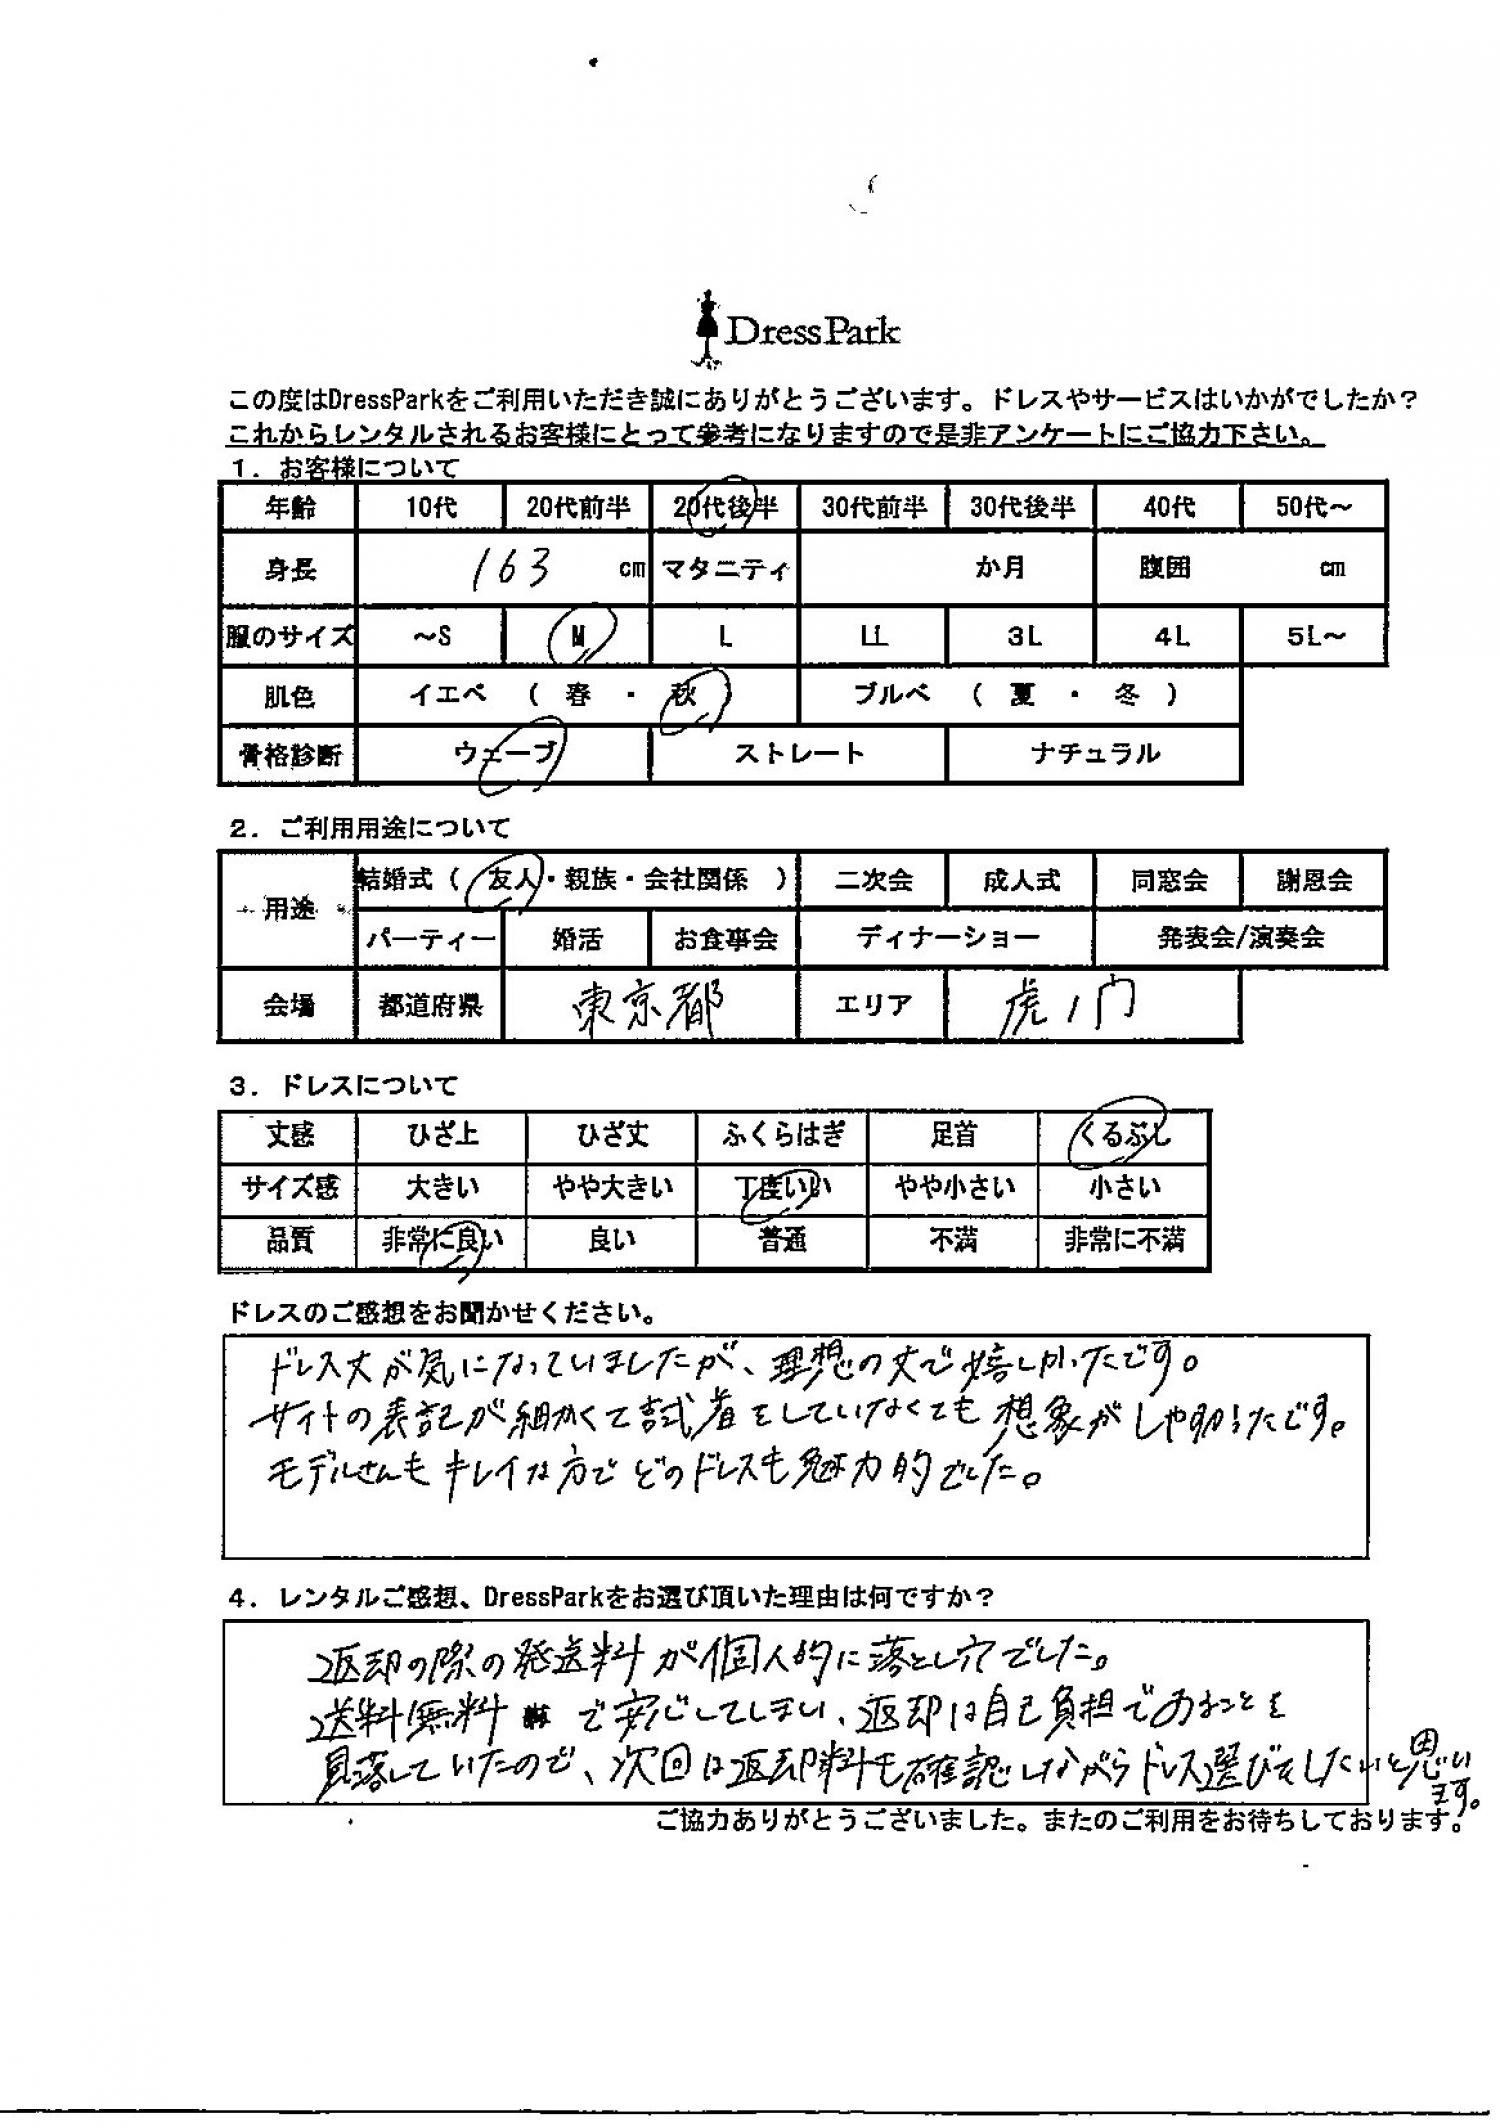 DressPark
この度はDressParkをご利用いただき誠にありがとうございます。ドレスやサービスはいかがでしたか？
これからレンタルされるお客様にとって参考になりますので是非アンケートにご協力下さい。
1. お客様について
年齢 10代 20代前半 20代後半 30代前半 30代後半 40代 50代～
身長 163 cm マタニティ か月 腹囲 cm
服のサイズ ～S M L LL 3L 4L 5L～
肌色 イエベ （ 春 ・ 秋 ） ブルベ （ 夏 ・ 冬 ）
骨格診断 ウェーブ ストレート ナチュラル
2. ご利用用途について
用途 結婚式（ 友人・親族・会社関係 ） 二次会 成人式 同窓会 謝恩会
パーティー 婚活 お食事会 ディナーショー 発表会/演奏会
会場 都道府県 東京都 エリア 虎ノ門
3. ドレスについて
丈感 ひざ上 ひざ丈 ふくらはぎ 足首 くるぶし
サイズ感 大きい やや大きい 丁度いい やや小さい 小さい
品質 非常に良い 良い 普通 不満 非常に不満
ドレスのご感想をお聞かせください。
ドレス丈が気になっていましたが、理想の丈で嬉しかったです。
サイトの表記が細かくて試着をしていなくても想象がしやすかったです。
モデルさんもキレイな方でどのドレスも魅力的でした。
4. レンタルご感想、DressParkをお選び頂いた理由は何ですか？
返却の際の発送料が個人的に落とし穴でした。
送料無料で安心してしまい、返却は自己負担であることを
見落していたので、次回は返却料も確認しながらドレス選びをしたいと思い
ます。
ご協力ありがとうございました。またのご利用をお待ちしております。